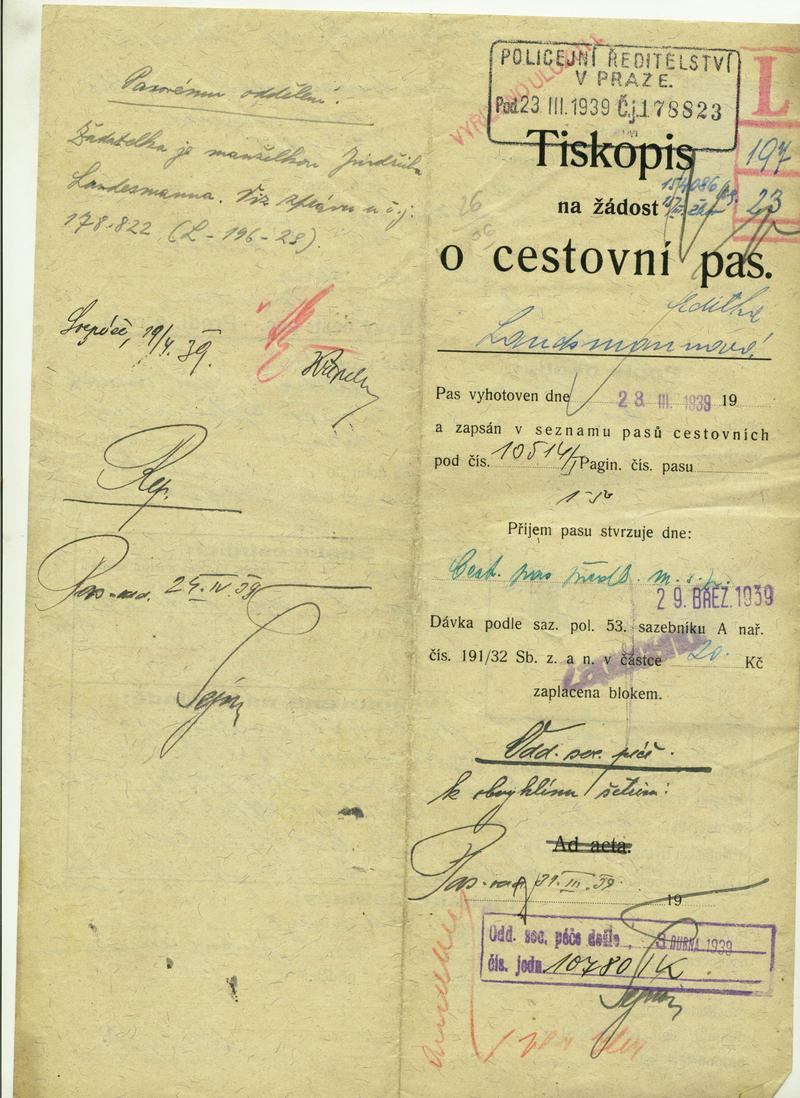 Pasovému oddělení.
Žadatelka je manželkou Jindřicha
Landesmanna. Viz zprávu u č.j.
178.822 (L-196-28).
19/4. 39.
Rep.
Pas-odd. 24. IV. 39
POLICEJNÍ ŘEDITELSTVÍ
V PRAZE.
Pod 23 III. 1939 Čj. 178823
L
197
23
Tiskopis
na žádost
26
o cestovní pas.
Editha
Landsmannová
Pas vyhotoven dne 28 III. 1939 19
a zapsán v seznamu pasů cestovních
pod čís. 10514/I Pagin. čís. pasu
Příjem pasu stvrzuje dne:
Cest. pas
29. BŘEZ. 1939
Dávka podle saz. pol. 53. sazebníku A nař.
čís. 191/32 Sb. z. a n. v částce 20.- Kč
zaplacena blokem.
Odd. soc. péče.
k obvyklému šetření:
Ad acta.
Pas-odd 31. III. 39.
19
Odd. soc. péče došlo 3 DUBNA 1939
čís. jedn. 10780/K